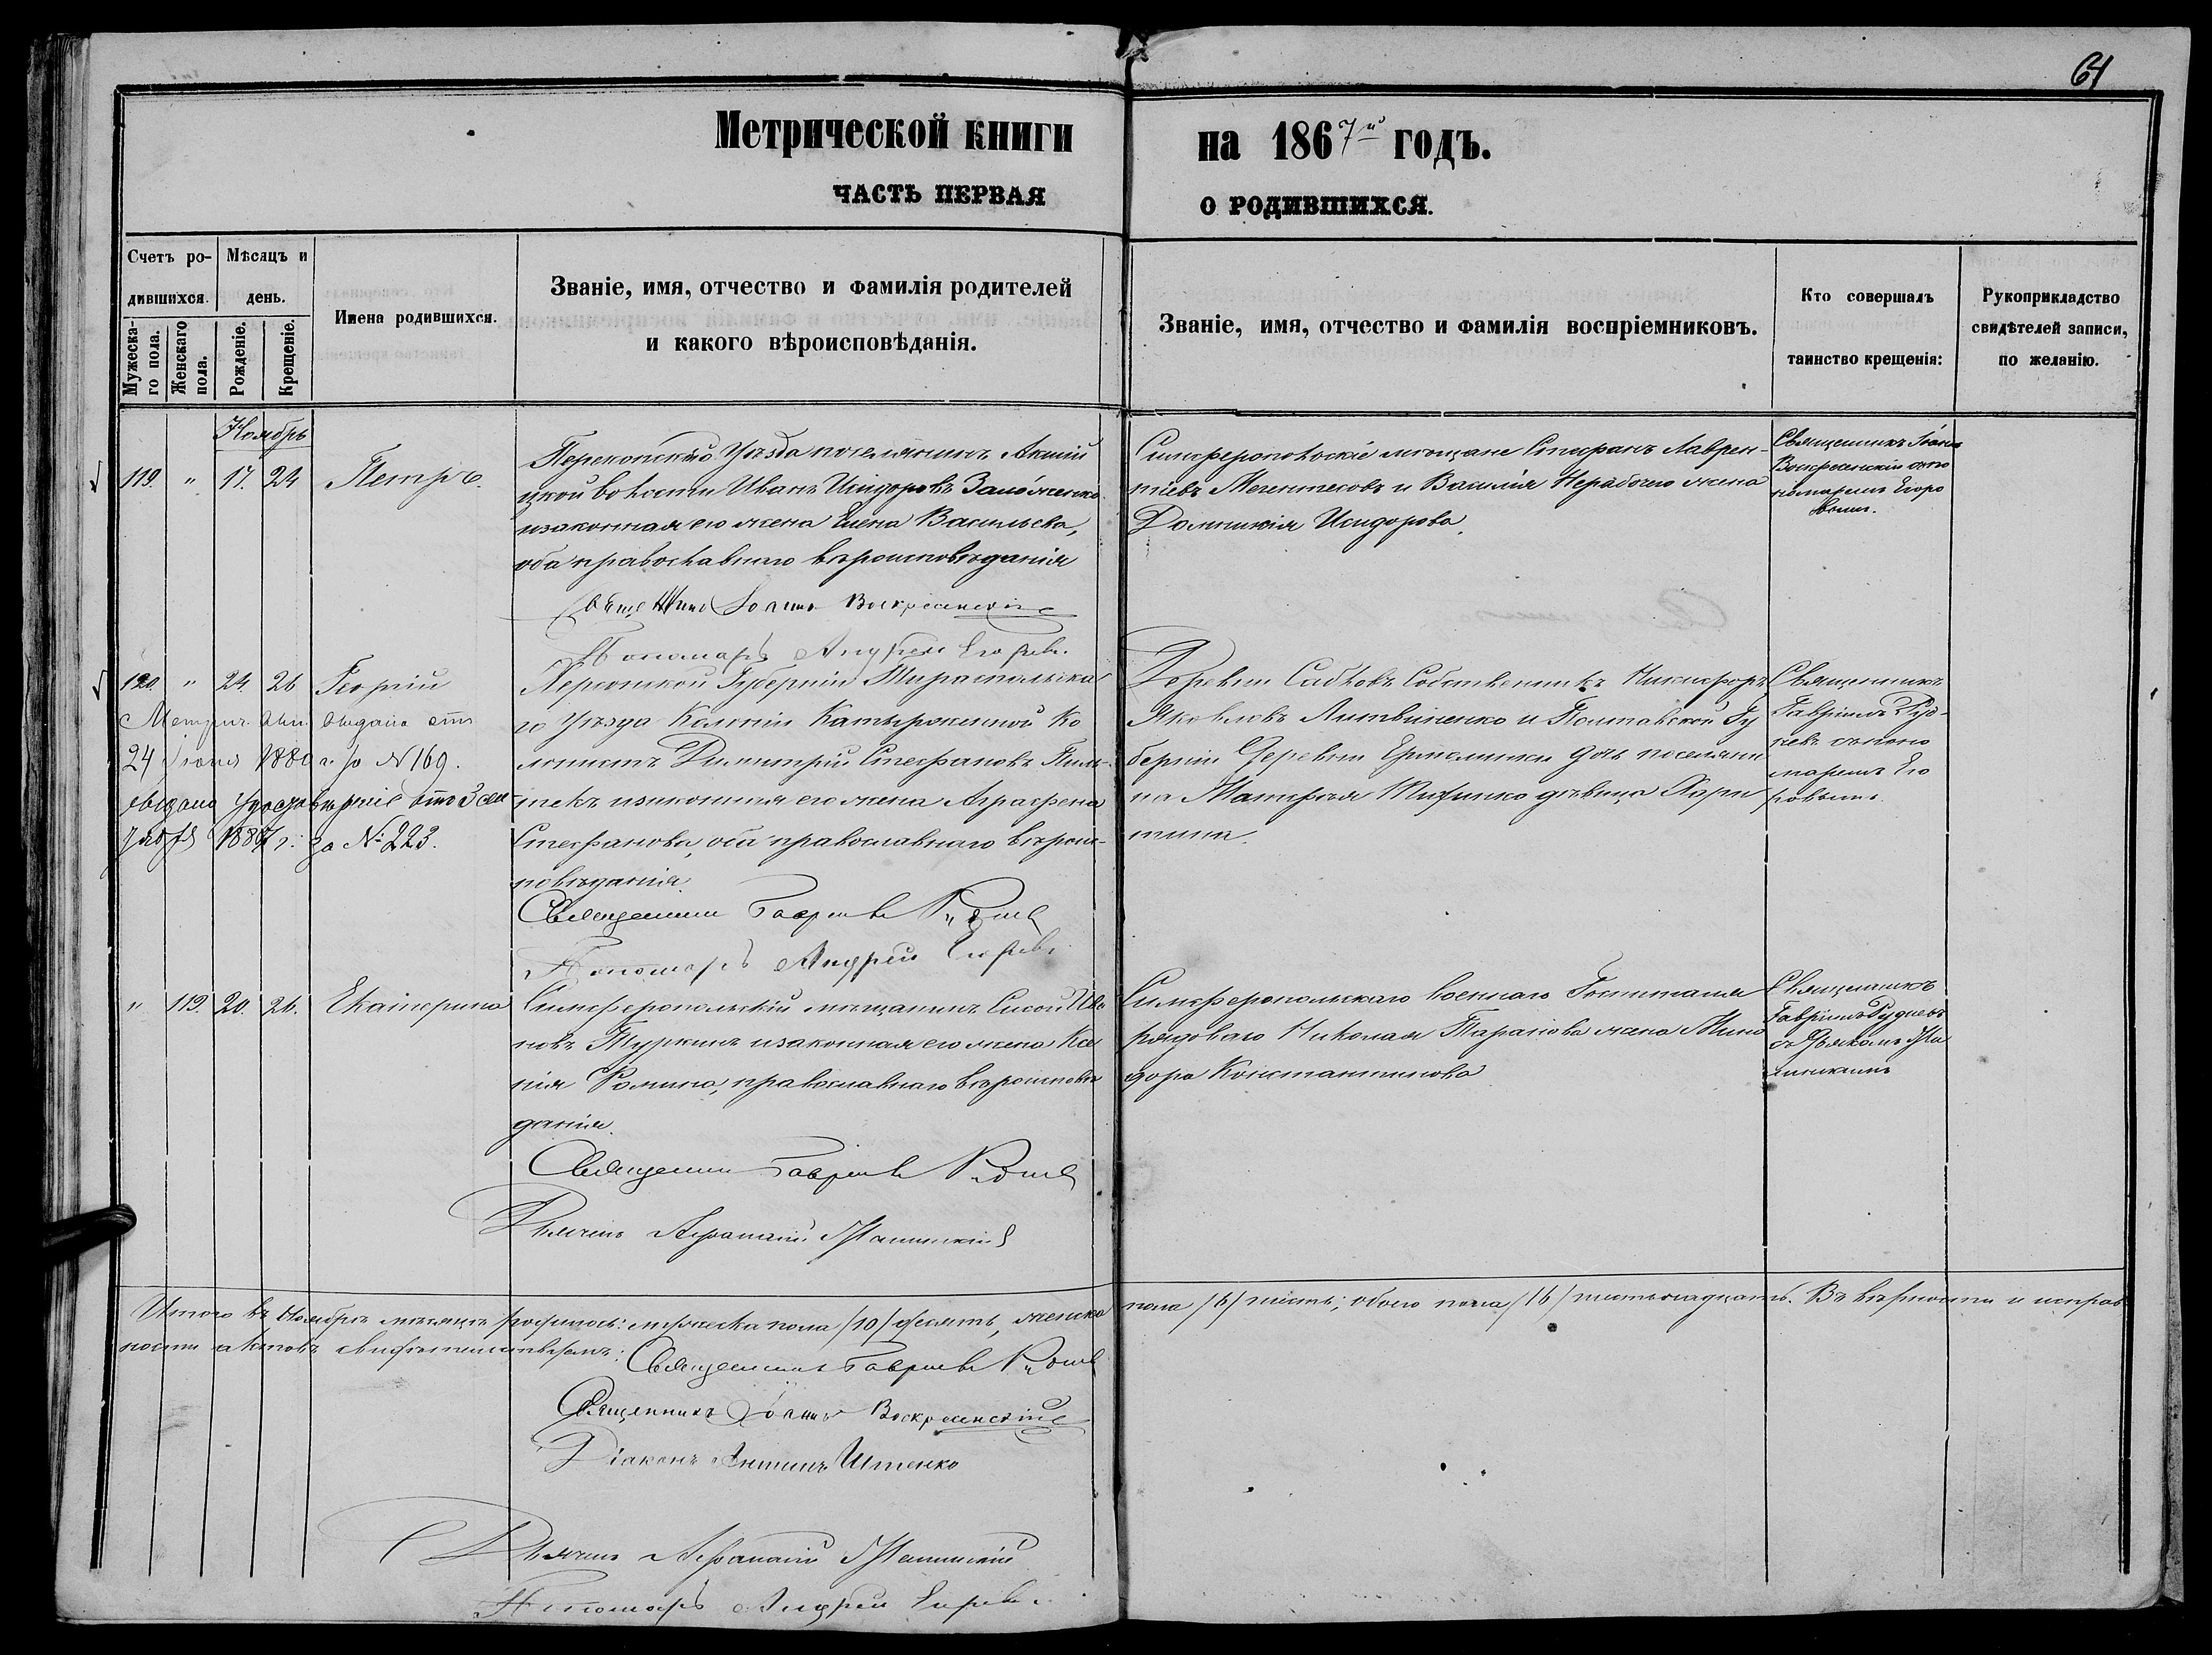 64
Метрической книги на 1867й годъ.
ЧАСТЬ ПЕРВАЯ О РОДИВШИХСЯ.
Счетъ родившихся.
Мужескаго пола.
Женскаго пола.
Мѣсяцъ и день.
Рожденіе.
Крещеніе.
Имена родившихся.
Званіе, имя, отчество и фамилія родителей
и какого вѣроисповѣданія.
Званіе, имя, отчество и фамилія воспріемниковъ.
Кто совершалъ
таинство крещенія:
Рукоприкладство
свидѣтелей записи,
по желанію.
Ноябрь
119. " 17. 24 Петръ.
Перекопскаго Уѣзда поселянинъ
волости Иванъ Исидоровъ
изаконная его жена Елена Васильева,
оба православнаго вѣроисповѣданія
Священникъ Іоаннъ Воскресенскій
Пономарь Андрей Егоровъ.
Симферопольскіе мѣщане Стефанъ Лаврен-
тіевъ и Василія жена
Домникія Исидорова.
Священникъ Іоаннъ
Воскресенскій съ по
номаремъ Егоро
вымъ.
120. " 24. 26 Георгій
Метрич. выдано отъ
24 Іюня 1880 г. за №169.
выдано удостовѣреніе отъ 3 сен-
тября 1887 г. за №223.
Херсонской Губерніи Тираспольска
го Уѣзда Колоніи Ко
лонистъ Димитрій Стефановъ
изаконная его жена Аграфена
Стефанова, оба православнаго вѣроис-
повѣданія.
Священникъ Гавріилъ Рудневъ
Пономарь Андрей Егоровъ.
Деревни Собственникъ Никифоръ
Яковлевъ Литвиненко и Полтавской Гу
берніи Деревни дочь поселяни
на дѣвица Хари
тина.
Священникъ
Гавріилъ Руд-
невъ съ поно
маремъ Его
ровымъ.
" 119. 20. 26. Екатерина
Симферопольскій мѣщанинъ Сисой Ива
новъ Туркинъ изаконная его жена Ксе
нія Фомина, православнаго вѣроисповѣ
данія.
Священникъ Гавріилъ Рудневъ
Дьячекъ Афанасій
Симферопольскаго военнаго Госпиталя
рядоваго Николая Таранова жена Мино
дора Константинова
Священникъ
Гавріилъ Рудневъ
съ Дьякомъ
Итого въ Ноябрѣ мѣсяцѣ родилось: мужеска пола /10/ десять, женска пола /6/ шесть; обоего пола /16/ шестьнадцать. Въ вѣрности и исправ
ности актовъ свидѣтельствуемъ: Священникъ Гавріилъ Рудневъ
Священникъ Іоаннъ Воскресенскій
Діаконъ Антипъ Ильенко
Дьячекъ Афанасій
Пономарь Андрей Егоровъ.